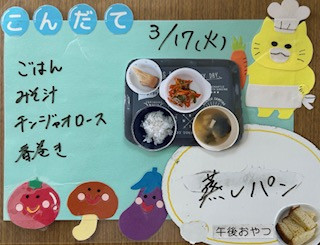 こんだて
3/17(火)
ごはん
みそ汁
チンジャオロース
春巻き
蒸しパン
午後おやつ